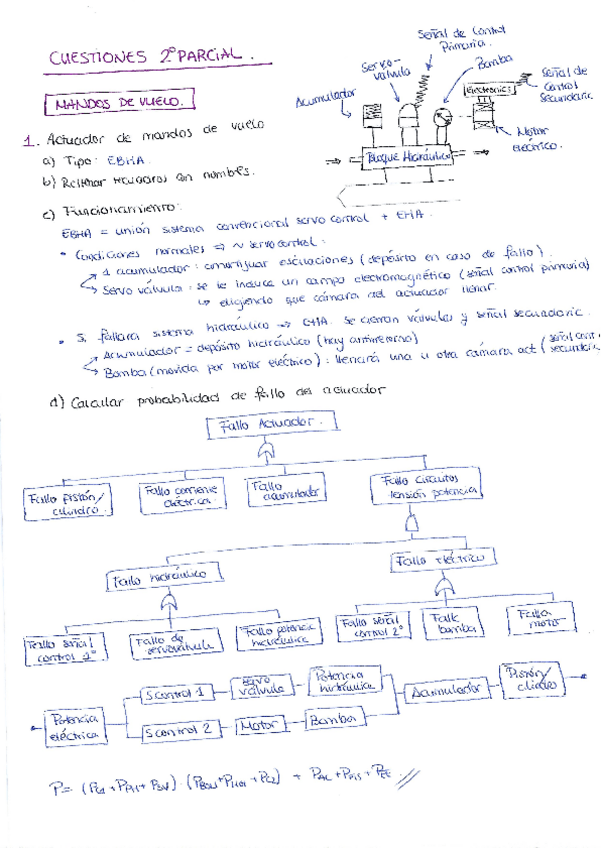 CUESTIONES 2º PARCIAL.
Señal de Control
Primaria.
Servo-
válvula
Bomba
Acumulador
Electronics
Señal de
Control
Secundaria.
Motor
eléctrico.
Bloque Hidráulico
MANDOS DE VUELO.
1. Actuador de mandos de vuelo
a) Tipo: EBHA.
b) Rellenar recuadros con nombres.
c) Funcionamiento:
EBHA = unión sistema convencional servo control + EHA.
• Condiciones normales ⇒ ~ servocontrol:
↗ 1 acumulador: amortiguar oscilaciones (depósito en caso de fallo).
↘ Servo válvula: se le induce un campo electromagnético (señal control primaria)
↳ eligiendo que cámara del actuador llenar.
• Si fallara sistema hidráulico → EHA. Se cierran válvulas y señal secundaria.
↗ Acumulador = depósito hidráulico (hay antirretorno)
↘ Bomba (movida por motor eléctrico): llenará una u otra cámara act (señal cont
secundaria
d) Calcular probabilidad de fallo del actuador
Fallo Actuador.
Fallo pistón/
cilindro.
Fallo corriente
eléctrica.
Fallo
acumulador
Fallo circuitos
tensión potencia
Fallo hidráulico
Fallo eléctrico
Fallo señal
control 1º
Fallo de
servoválvula
Fallo potencia
hidráulica
Fallo señal
control 2º
Fallo
bomba
Fallo
motor
Potencia
eléctrica
S control 1
Servo
válvula
Potencia
hidráulica
S control 2
Motor
Bomba
Acumulador
Pistón/
cilindro